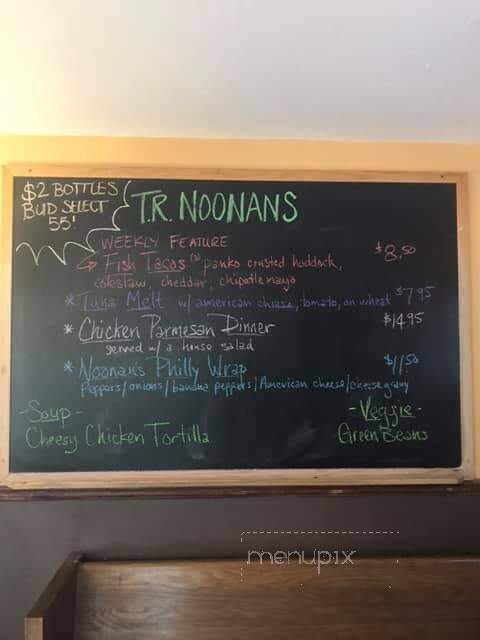 $2 BOTTLES
BUD SELECT
55'
T.R. NOONANS
WEEKLY FEATURE
Fish Tacos (3) panko crusted haddock, $8.50
coleslaw, cheddar, chipotle mayo
* Tuna Melt w/american cheese, tomato, on wheat $7.95
* Chicken Parmesan Dinner $14.95
served w/ a house salad
* Noonan's Philly Wrap $11.50
Peppers/onions/banana peppers/American cheese/cheese gravy
-Soup-
Cheesy Chicken Tortilla
-Veggie-
Green Beans
menupix